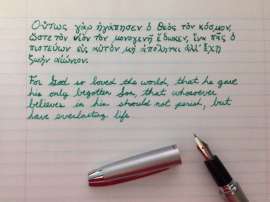 Οὕτως γὰρ ἠγάπησεν ὁ Θεὸς τὸν κόσμον,
ὥστε τὸν υἱὸν τὸν μονογενῆ ἔδωκεν, ἵνα πᾶς ὁ
πιστεύων εἰς αὐτὸν μὴ ἀπόληται ἀλλ' ἔχῃ
ζωὴν αἰώνιον.
For God so loved the world, that he gave
his only begotten Son, that whosoever
believes in him should not perish, but
have everlasting life